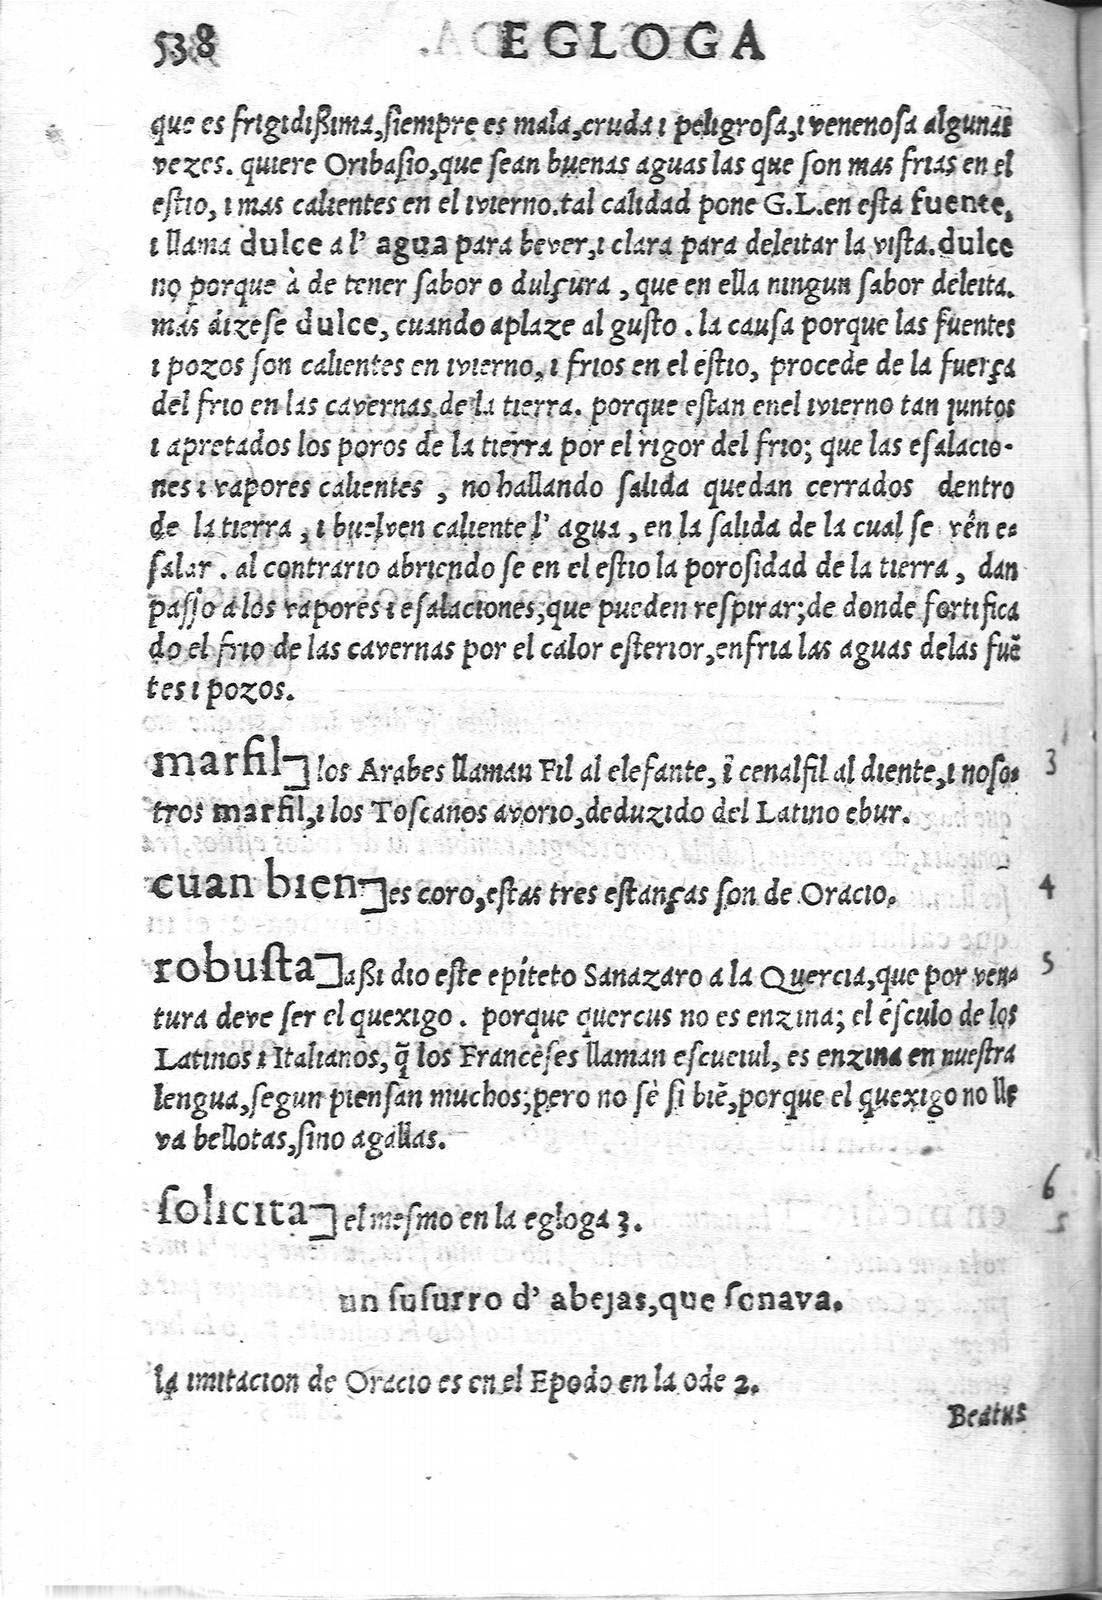 538 EGLOGA
que es frigidißima,ſiempre es mala,cruda i peligroſa,i venenoſa algunas
vezes. quiere Oribaſio,que ſean buenas aguas las que ſon mas frias en el
eſtio, i mas calientes en el ivierno.tal calidad pone G.L.en eſta fuente,
i llama dulce al' agua para bever,i clara para deleitar la viſta.dulce
no porque à de tener ſabor o dulçura , que en ella ningun ſabor deleita.
mas dizeſe dulce, cuando aplaze al guſto . la cauſa porque las fuentes
i pozos ſon calientes en ivierno, i frios en el eſtio, procede de la fuerça
del frio en las cavernas de la tierra. porque eſtan enel ivierno tan juntos
i apretados los poros de la tierra por el rigor del frio; que las eſalacio-
nes i vapores calientes , no hallando ſalida quedan cerrados dentro
de la tierra , i buelven caliente l' agua , en la ſalida de la cual ſe vên e-
ſalar . al contrario abriendo ſe en el eſtio la poroſidad de la tierra , dan
paſſo a los vapores i eſalaciones,que pueden reſpirar;de donde fortifica
do el frio de las cavernas por el calor eſterior,enfria las aguas delas fuẽ
tes i pozos.
marfil] los Arabes llaman Fil al elefante, i cenalfil al diente,i noſo- 3
tros marfil,i los Toſcanos avorio,deduzido del Latino ebur.
cuan bien] es coro,eſtas tres eſtanças ſon de Oracio. 4
robuſta] aßi dio eſte epíteto Sanazaro a la Quercia,que por ven- 5
tura deve ſer el quexigo . porque quercus no es enzina; el éſculo de los
Latinos i Italianos, q̃ los Franceſes llaman eſcueiul, es enzina en nueſtra
lengua,ſegun pienſan muchos;pero no sè ſi biẽ,porque el quexigo no lle
va bellotas,ſino agallas.
ſolicita] el meſmo en la egloga 3. 6
un ſuſurro d' abejas,que ſonava.
la imitacion de Oracio es en el Epodo en la ode 2.
Beatus